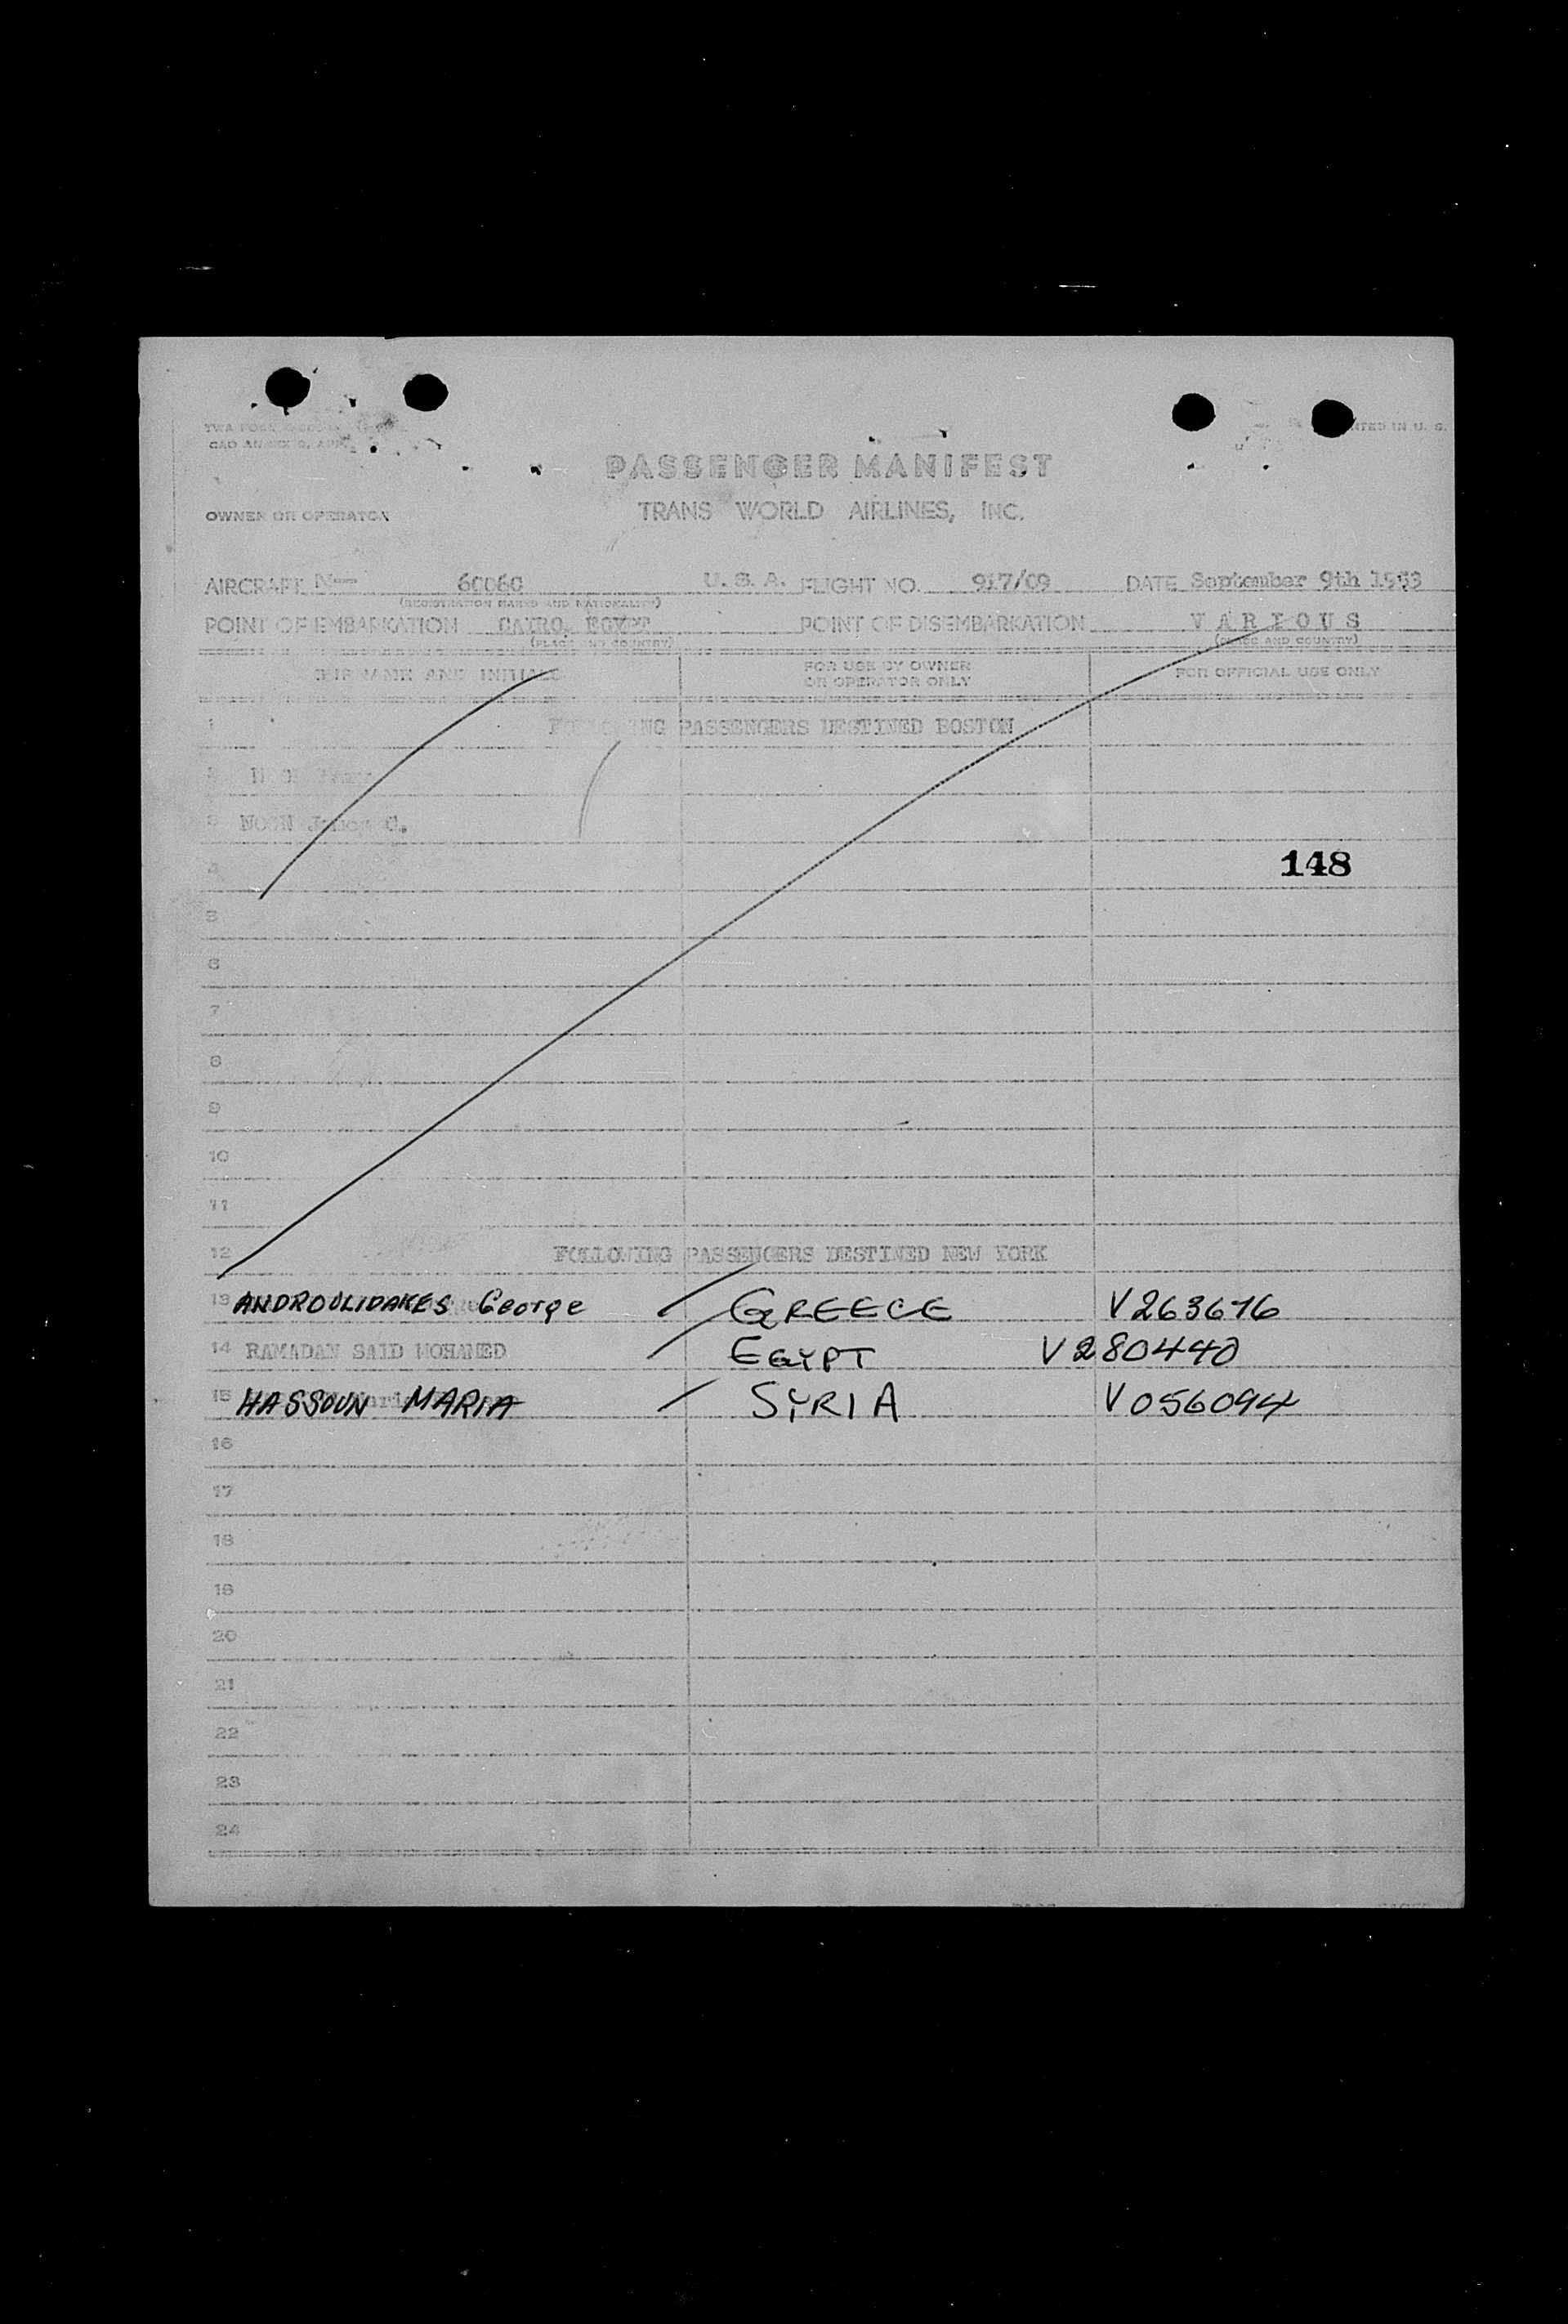 PRINTED IN U. S.
PASSENGER MANIFEST
OWNER OR OPERATOR TRANS WORLD AIRLINES, INC.
AIRCRAFT N— 60060 U. S. A. FLIGHT NO. 917/09 DATE September 9th 1953
(REGISTRATION MARKS AND NATIONALITY)
POINT OF EMBARKATION CAIRO, EGYPT POINT OF DISEMBARKATION VARIOUS
(PLACE AND COUNTRY) (PLACE AND COUNTRY)
SURNAME AND INITIALS FOR USE BY OWNER OR OPERATOR ONLY FOR OFFICIAL USE ONLY
1 FOLLOWING PASSENGERS DESTINED BOSTON
2
3 NOON James C.
4 148
5
6
7
8
9
10
11
12 FOLLOWING PASSENGERS DESTINED NEW YORK
13 ANDROULIDAKES George GREECE V263676
14 RAMADAN SAID MOHAMED EGYPT V280440
15 HASSOUN MARIA SYRIA V056094
16
17
18
19
20
21
22
23
24